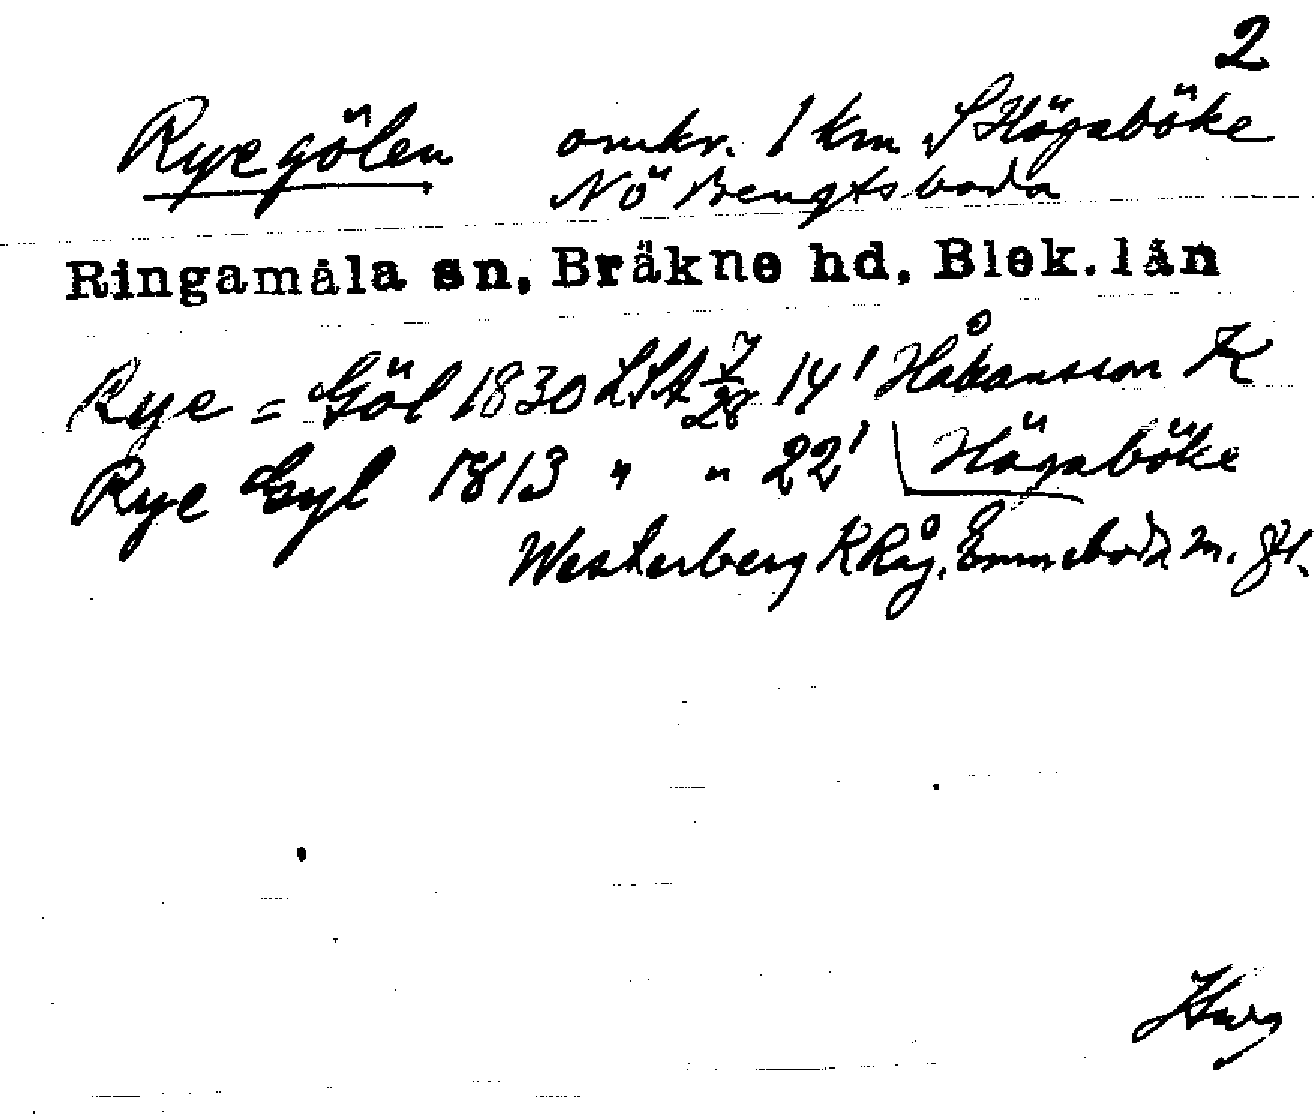 2
Ryegölen omkr. 1 km S Högaböke
NÖ Bengtsboda
Ringamåla sn, Bräkne hd, Blek. län
Rye = Göl 1830 LSA 7/28 14' Håkansson K
Rye Gyl 1813 " " 22' Högaböke
Westerberg K Råg. Emneboda m. fl.